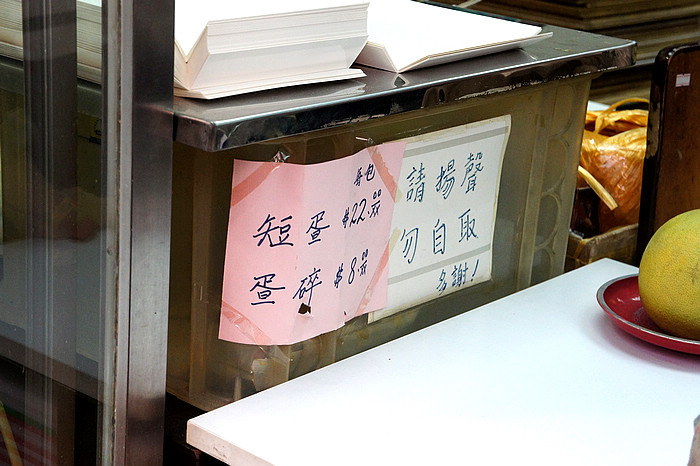 每包
短蛋 $22.00
蛋碎 $8.00
請揚聲
勿自取
多謝！